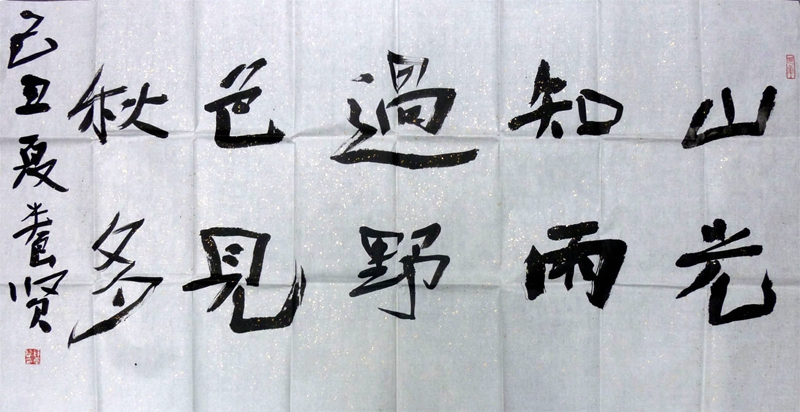 山光
知雨
過野
色見
秋多
己丑夏 贤